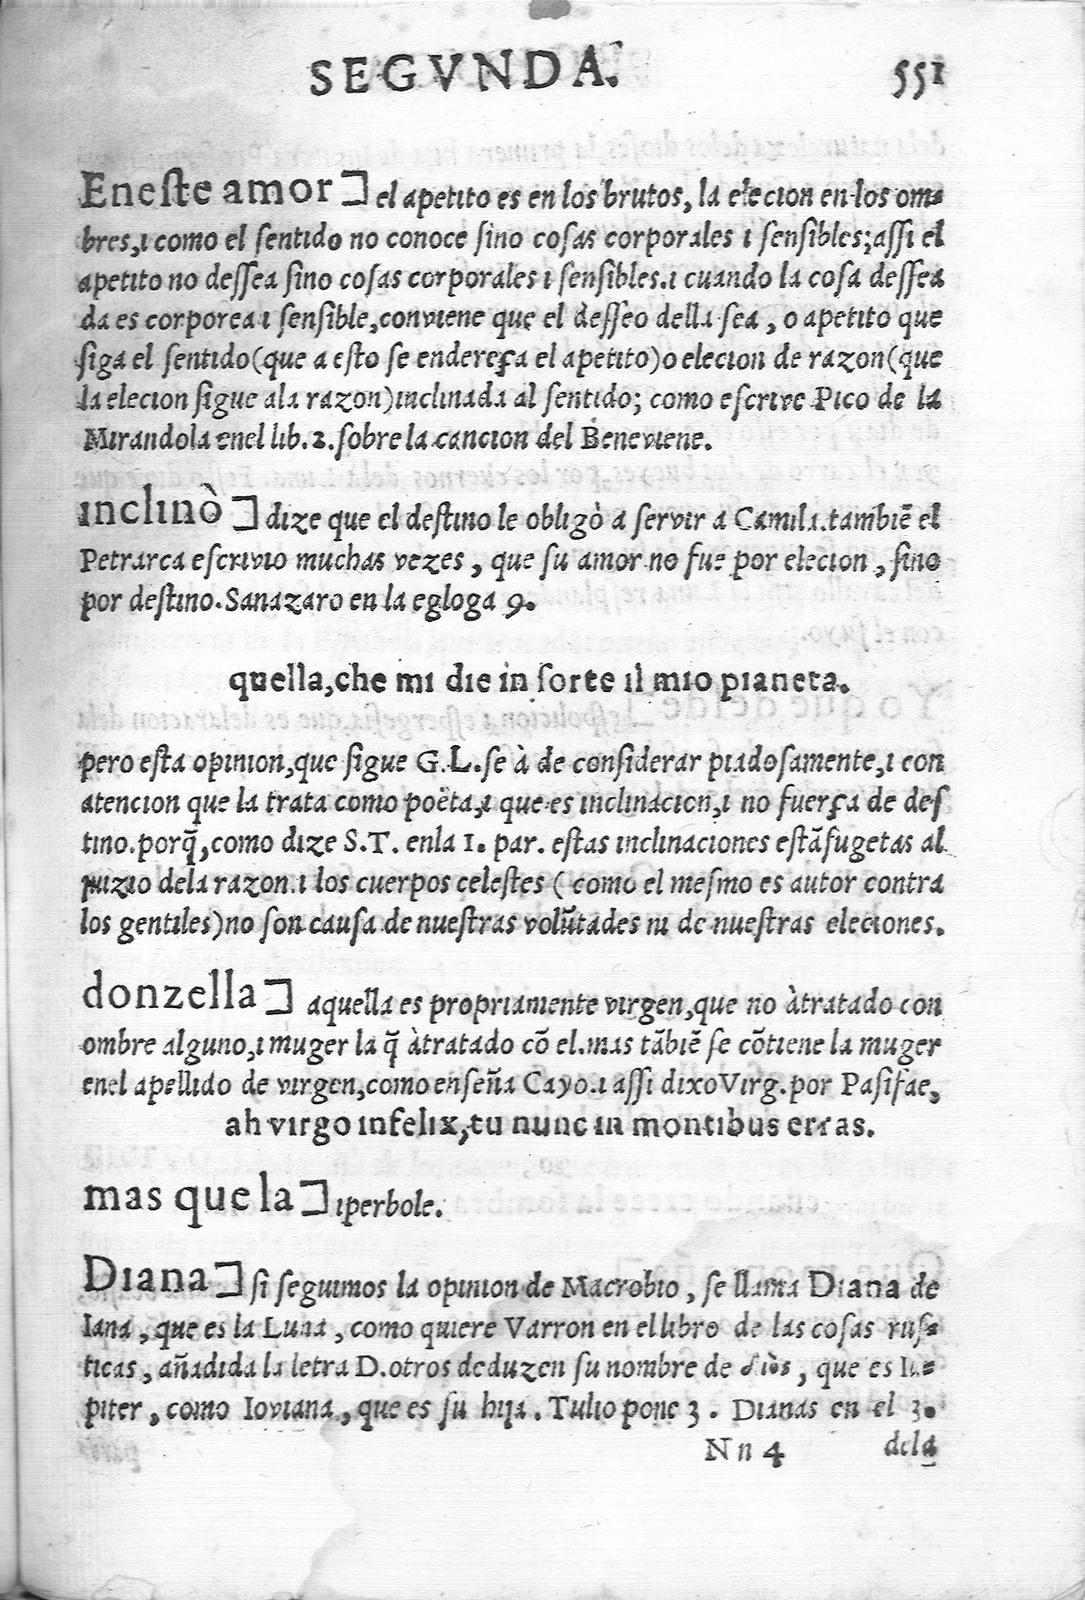 SEGVNDA. 551
Eneſte amor] el apetito es en los brutos, la elecion en los om=
bres,ı como el ſentido no conoce ſino coſas corporales ı ſenſibles;aſſi el
apetito no deſſea ſino coſas corporales ı ſenſibles.ı cuando la coſa deſſea
da es corporea ı ſenſible,conviene que el deſſeo della ſea, o apetito que
ſiga el ſentido(que a eſto se endereça el apetito)o elecion de razon(que
la elecion ſigue ala razon)ınclınada al ſentido; como eſcrive Pico de la
Mirandola enel lib.2.ſobre la cancion del Beneviene.
ınclınò] dize que el deſtino le obligò a ſervir a Camila.tambiē el
Petrarca eſcrivio muchas vezes, que ſu amor no fue por elecion, ſino
por deſtino.Sanazaro en la egloga 9.
quella,che mi die in ſorte il mio pianeta.
pero eſta opinion,que ſigue G.L.ſe à de conſiderar piadoſamente,ı con
atencion que la trata como poëta,ı que es inclinacion,ı no fuerça de deſ
tino.porq̃,como dize S.T. enla 1. par. eſtas inclinaciones eſtāſugetas al
juizio dela razon.ı los cuerpos celeſtes (como el meſmo es autor contra
los gentiles)no ſon cauſa de nueſtras volūtades ni de nueſtras eleciones.
donzella] aquella es propriamente virgen,que no àtratado con
ombre alguno,ı muger la q̃ àtratado cō el.mas tābiē ſe cōtiene la muger
enel apellido de virgen,como enſeña Cayo.ı aſſi dixo Virg.por Paſifae,
ah virgo infelix,tu nunc in montibus erras.
mas que la] ıperbole.
Dıana] ſi ſeguimos la opinion de Macrobio, ſe llama Diana de
Iana, que es la Luna, como quiere Varron en el libro de las coſas ruſ=
ticas, añadida la letra D.otros deduzen ſu nombre de dios, que es Iu=
piter, como Ioviana, que es ſu hija. Tulio pone 3. Dianas en el 3.
Nn 4 dela